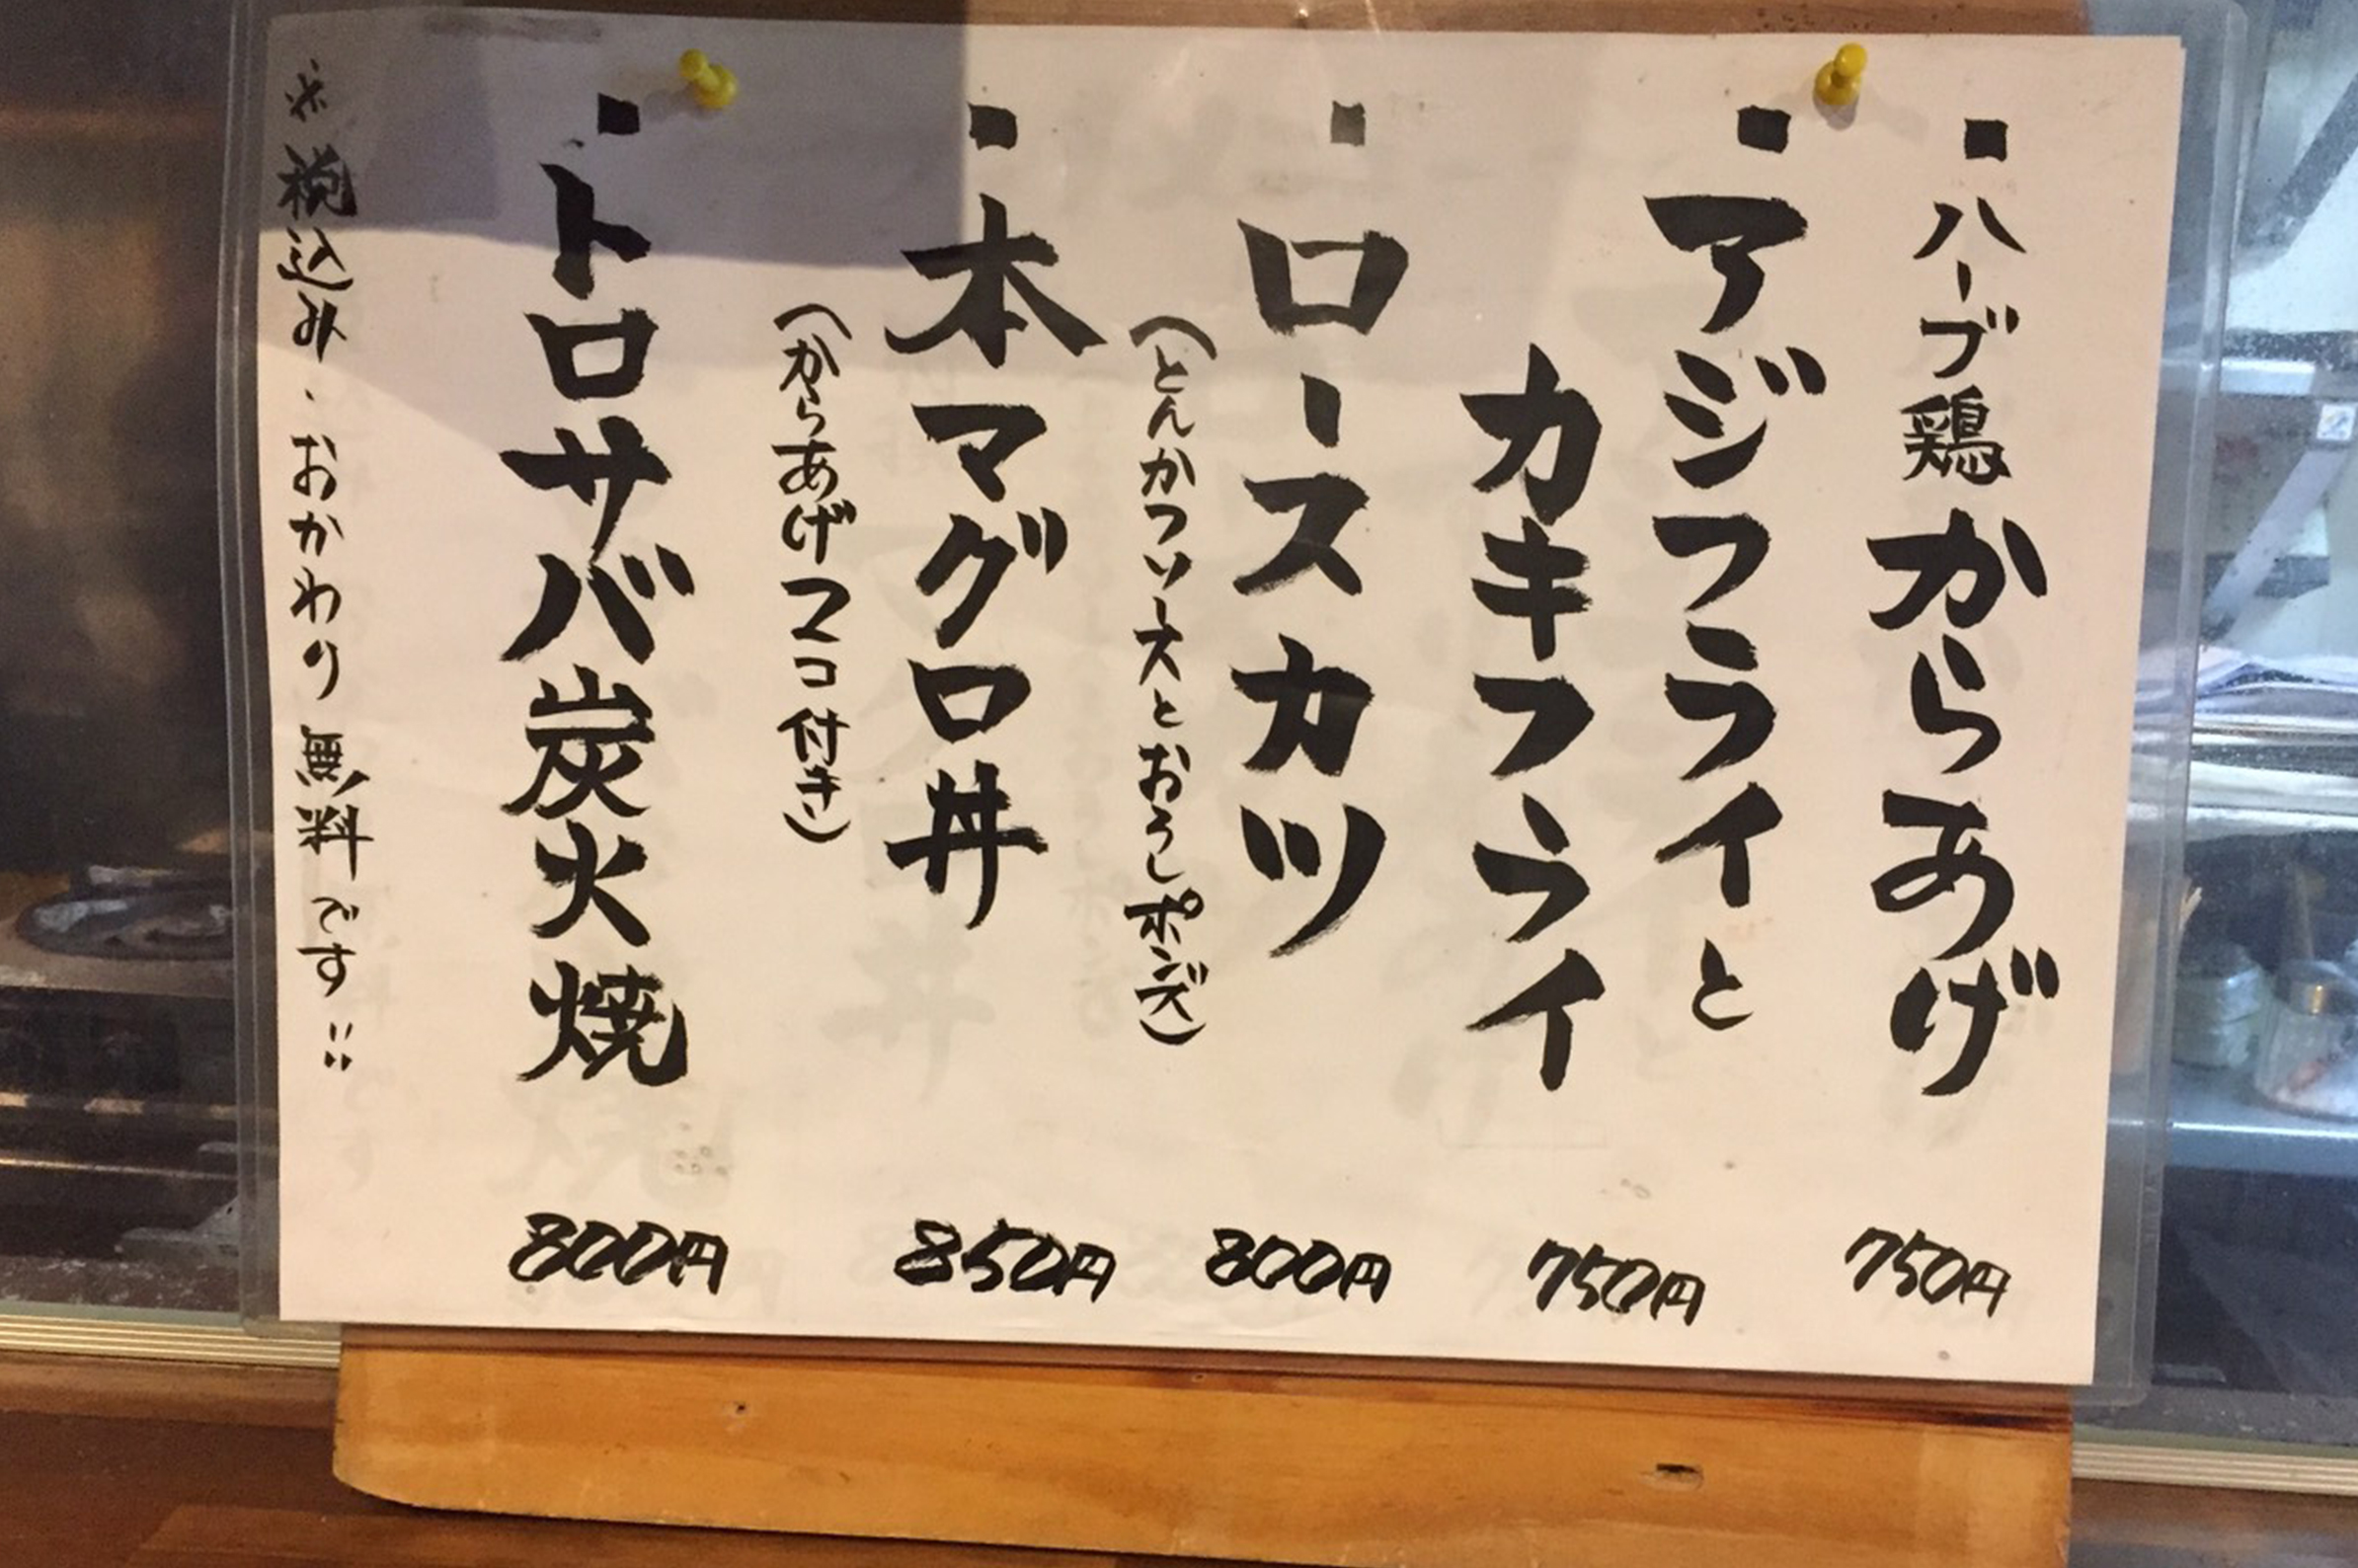 ・ハーブ鶏からあげ 750円
・アジフライと
カキフライ 750円
・ロースカツ 800円
(とんかつソースとおろしポンズ)
・本マグロ丼 850円
(からあげ2コ付き)
・トロサバ炭火焼 800円
※税込み・おかわり無料です!!